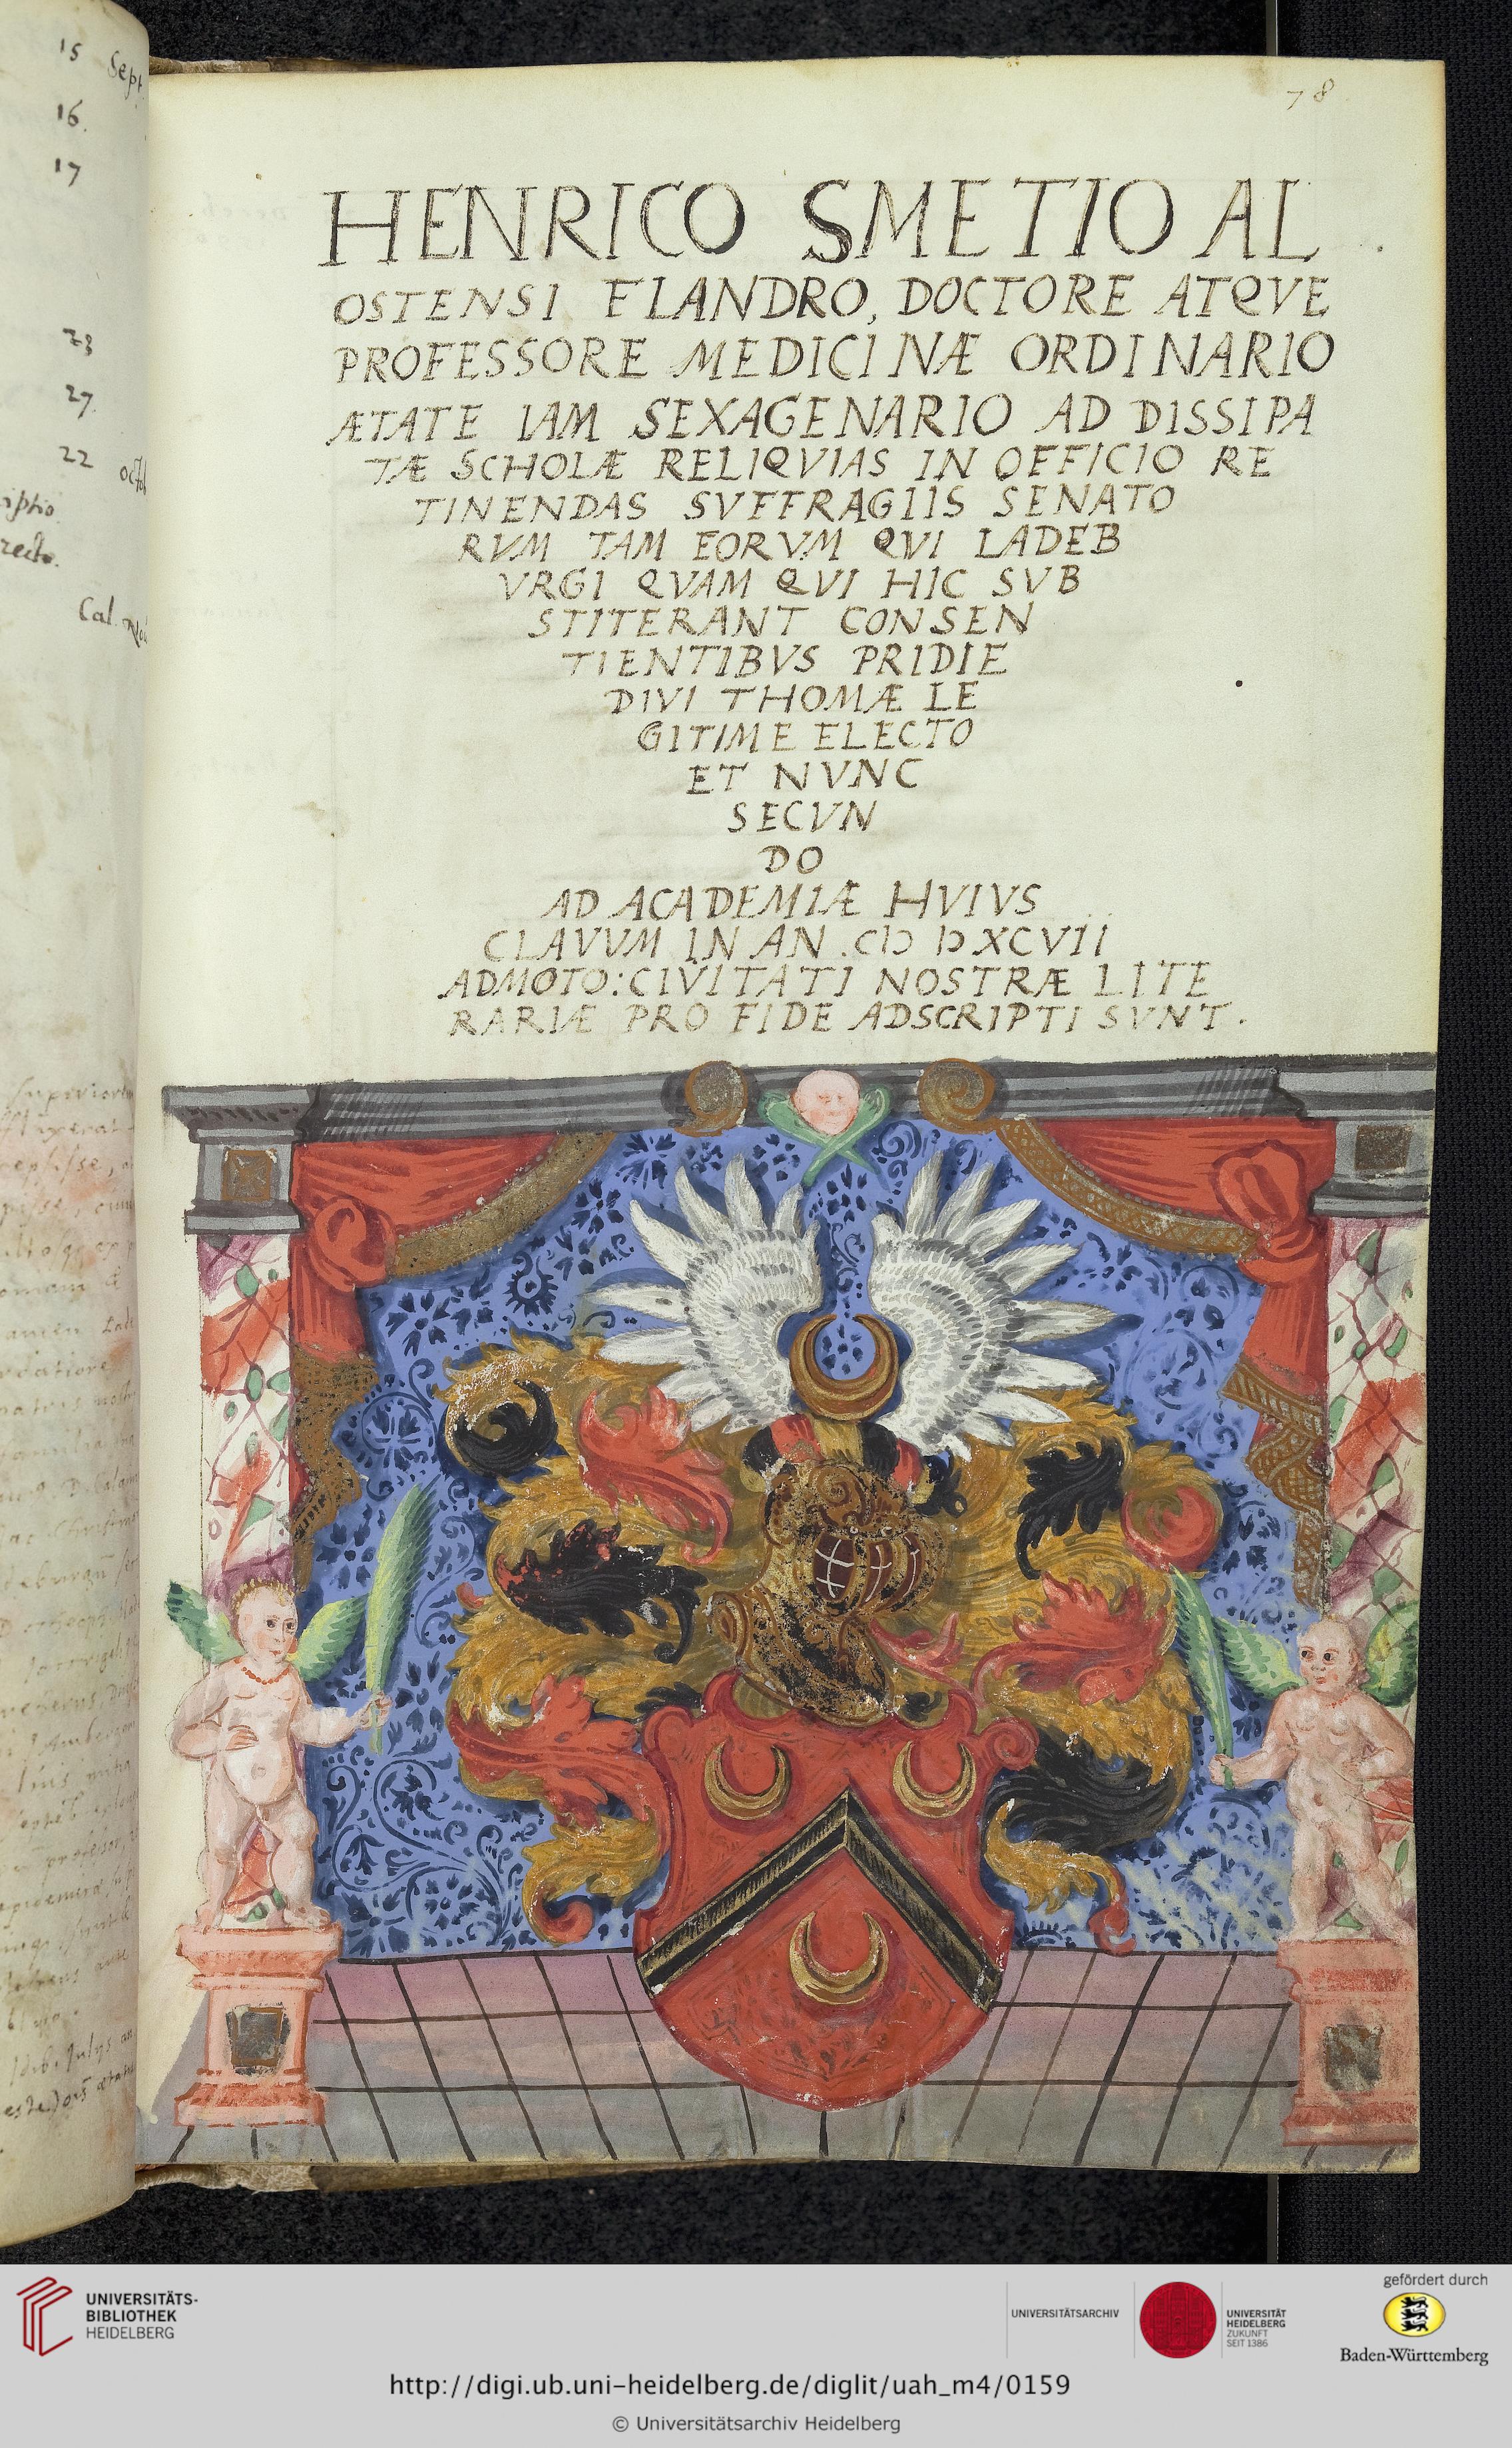 15 Sept
16.
17
23
27.
22
Cal.
78
HENRICO SMETIO AL
OSTENSI FLANDRO, DOCTORE ATQVE
PROFESSORE MEDICINÆ ORDINARIO
ÆTATE IAM SEXAGENARIO AD DISSIPA
TÆ SCHOLÆ RELIQVIAS IN OFFICIO RE
TINENDAS SVFFRAGIIS SENATO
RVM TAM EORVM QVI LADEB
VRGI QVAM QVI HIC SVB
STITERANT CONSEN
TIENTIBVS PRIDIE
DIVI THOMÆ LE
GITIME ELECTO
ET NVNC
SECVN
DO
AD ACADEMIÆ HVIVS
CLAVVM IN AN. CIↃ IↃ XCVII
ADMOTO: CIVITATI NOSTRÆ LITE
RARIÆ PRO FIDE ADSCRIPTI SVNT.
UNIVERSITÄTS-
BIBLIOTHEK
HEIDELBERG
UNIVERSITÄTSARCHIV
UNIVERSITÄT
HEIDELBERG
ZUKUNFT
SEIT 1386
gefördert durch
Baden-Württemberg
http://digi.ub.uni-heidelberg.de/diglit/uah_m4/0159
© Universitätsarchiv Heidelberg